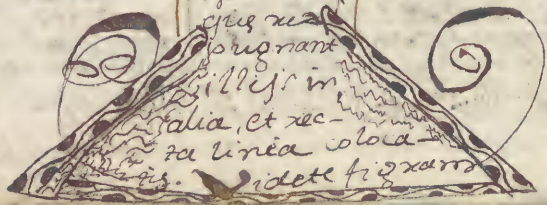 pugnant
illis in
talia, et rec-
ta linea coloca-
Videte figuram